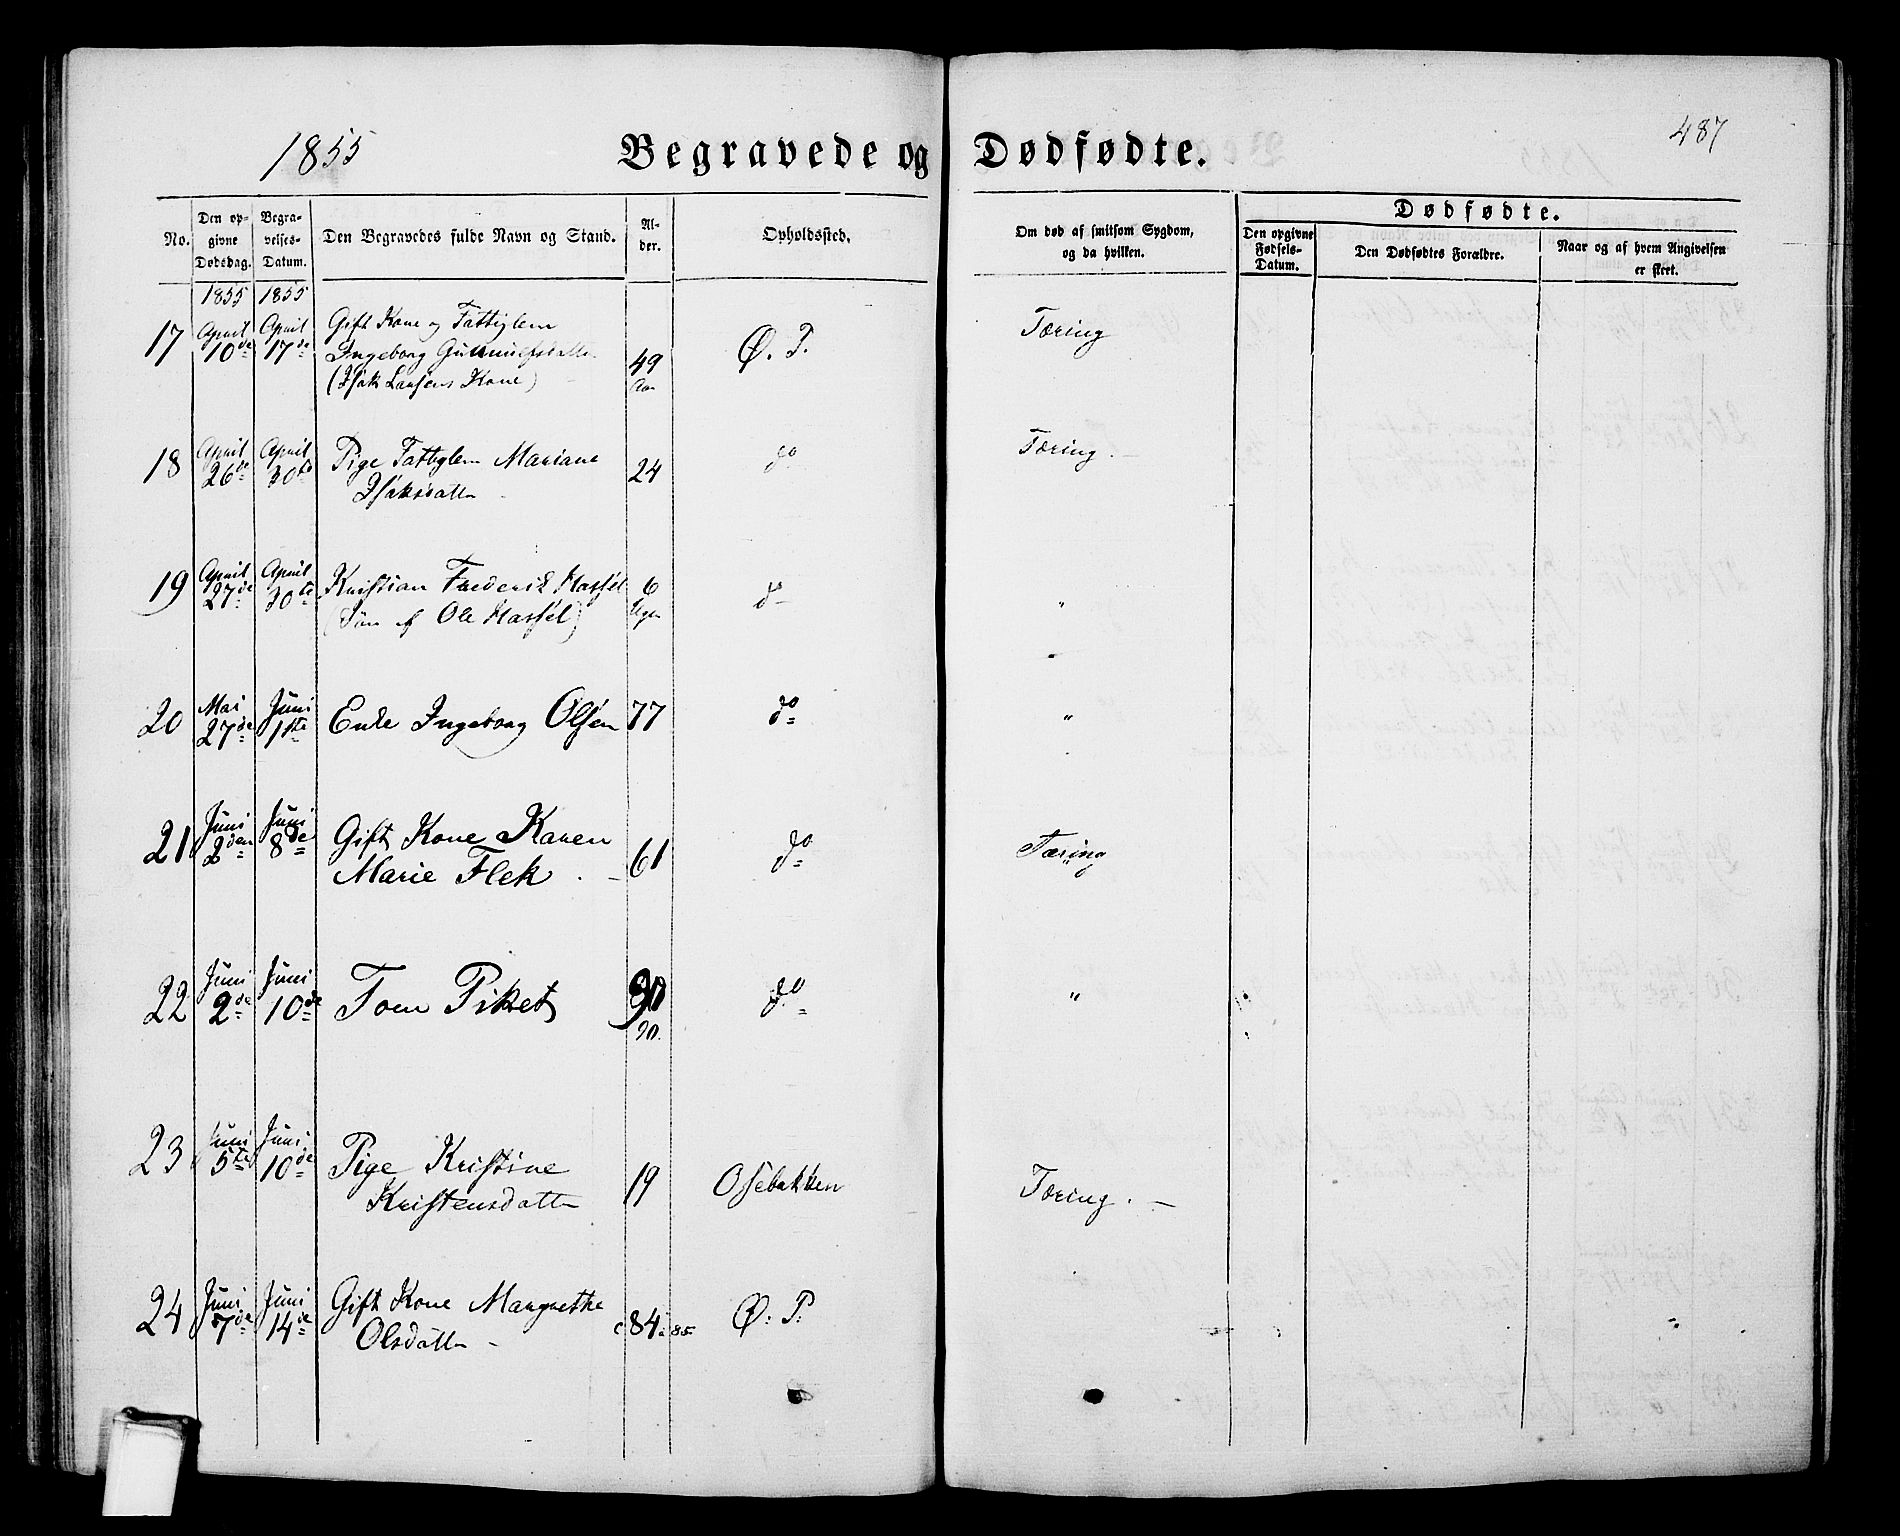 1855
Begravede og Dødfødte.
487
No.
Den opgivne Dødsdag.
Begravelses-Datum.
Den Begravedes fulde Navn og Stand.
Alder.
Opholdssted.
Om død af smitsom Sygdom, og da hvilken.
Dødfødte.
Den opgivne Fødsels-Datum.
Den Dødfødtes Forældre.
Naar og af hvem Angivelsen er skeet.
1855 1855
17 April 10de April 17de Gift Kone og Fattiglem
Ingeborg Gunnulfsdatter 49 Ø. P. Tæring
(Isak Larsens Kone) Aar
18 April 26de April 30te Pige Fattiglem Mariane 24 do Tæring. —
Isaksdatter
19 April 27de April 30te Kristian Frederik Hassel 6 do "
(Søn af Ole Hassel) Uger
20 Mai 27de Juni 1ste Enke Ingeborg Olsen 77 do "
21 Juni 2den Juni 8de Gift Kone Karen
Marie Flek 61 do Tæring
22 Juni 2de Juni 10de Tom Piket 90 do "
90.
23 Juni 5te Juni 10de Pige Kristine
Kristensdatter 19 Osebakken Tæring. —
24 Juni 7de Juni 14de Gift Kone Margrethe
Olsdatter — c 84 a 85 Ø: P: "